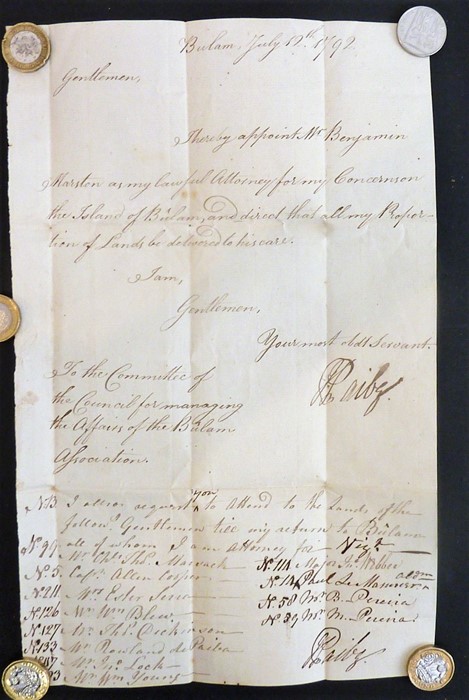 Bulam, July 12th 1792.
Gentlemen,
I hereby appoint Mr Benjamin
Marston as my lawful Attorney for my Concerns on
the Island of Bulam, and direct that all my Propor-
tion of Lands be delivered to his care.
I am,
Gentlemen,
Your most obdt Servant.
To the Committee of
the Council for managing
the Affairs of the Bulam
Association.
Paiba.
I also request you to Attend to the Lands of the
follow. Gentlemen till my return to Bulam
all of whom I am Attorney for Vizt
Mr Chs Thos
No. 5 Capt. Allen Cooper
No. 211
No. 126 Mr Wm Blew
No. 127 Mr Thos. Dickinson
No. 133 Mr Rowland de Paiba
Mr Jno. Lock
Mr Wm Young
No. 114 Major Jno. Webber
Paul Le
No. 58 Mr B. Pereira
No. 59 Mr M. Pereira
Paiba.